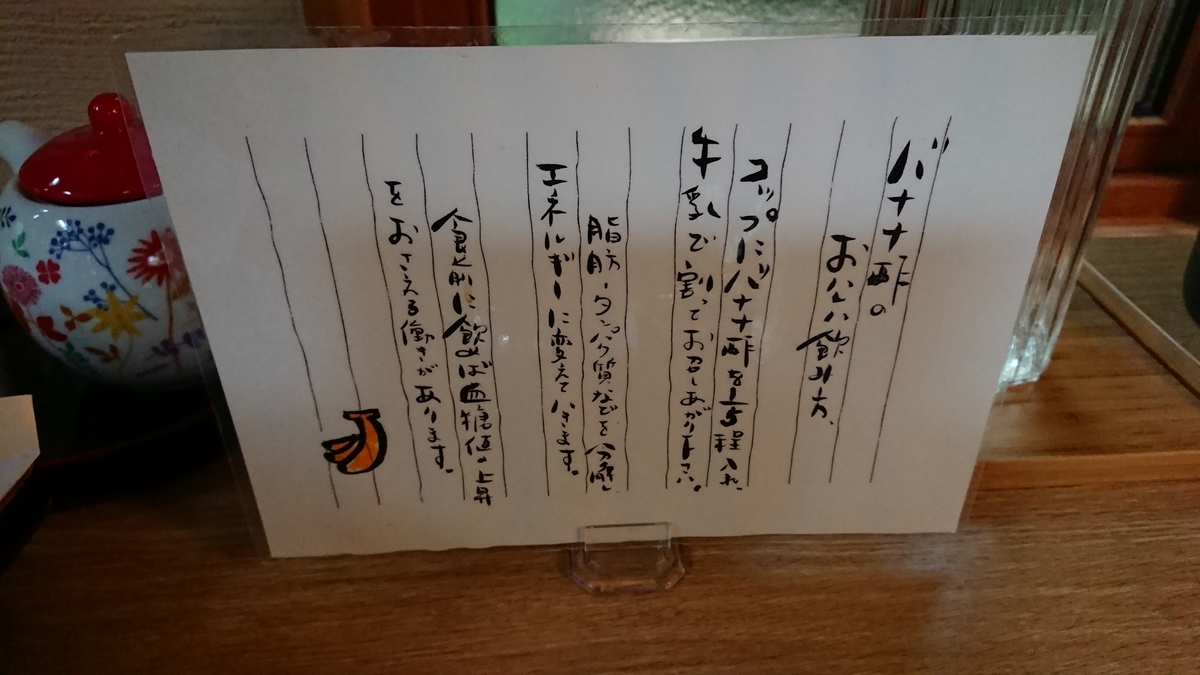 バナナ酢の
おいしい飲み方、
コップにバナナ酢を1/5程入れ、
牛乳で割ってお召しあがり下さい。
脂肪・タンパク質などを分解し、
エネルギーに変えていきます。
食前に飲めば血糖値の上昇
をおさえる働きがあります。